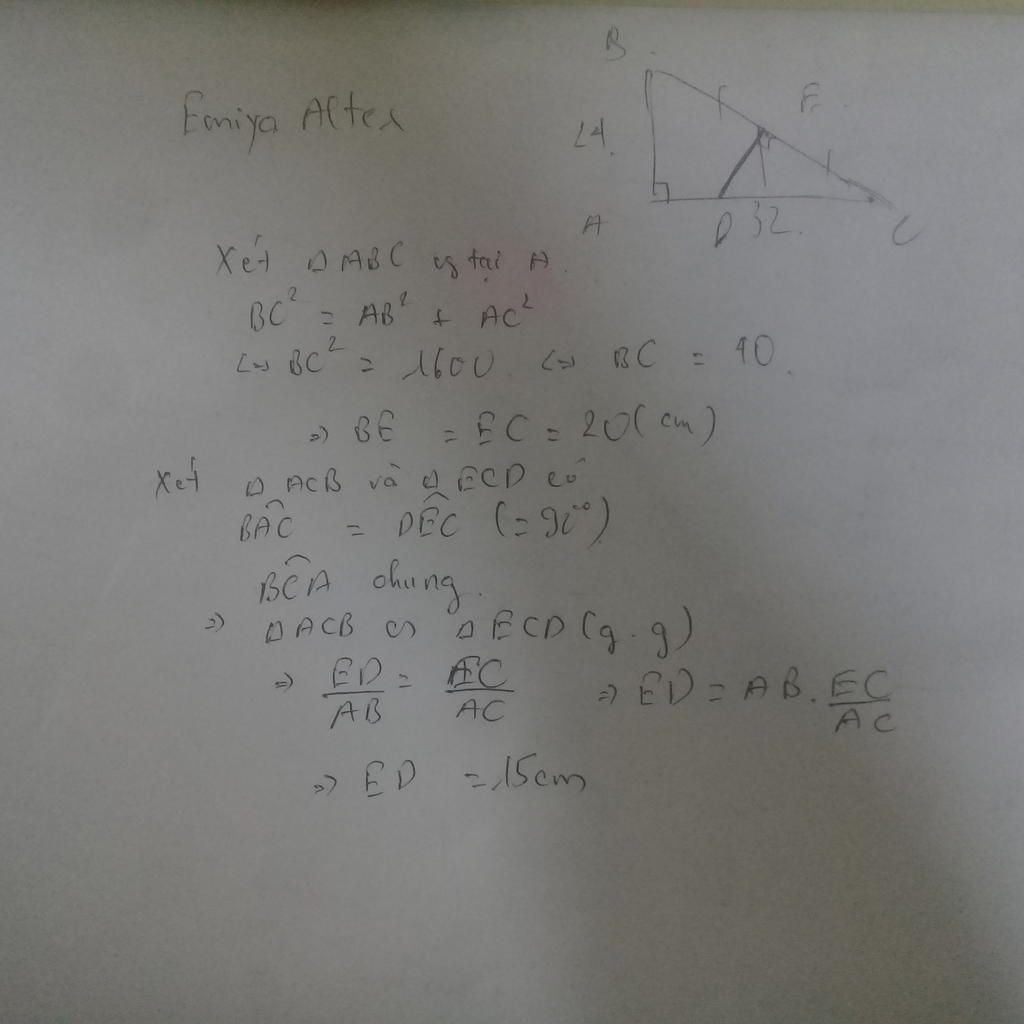 Emiya Alter
B
E
24
A
D 32
C
Xét Δ ABC tại A
BC² = AB² + AC²
<=> BC² = 1600 <=> BC = 40
=> BE = EC = 20 (cm)
Xét Δ ACB và Δ ECD có
BAC = DEC (= 90°)
BCA chung
=> Δ ACB ∽ Δ ECD (g.g)
=> ED/AB = EC/AC => ED = AB . EC/AC
=> ED = 15cm